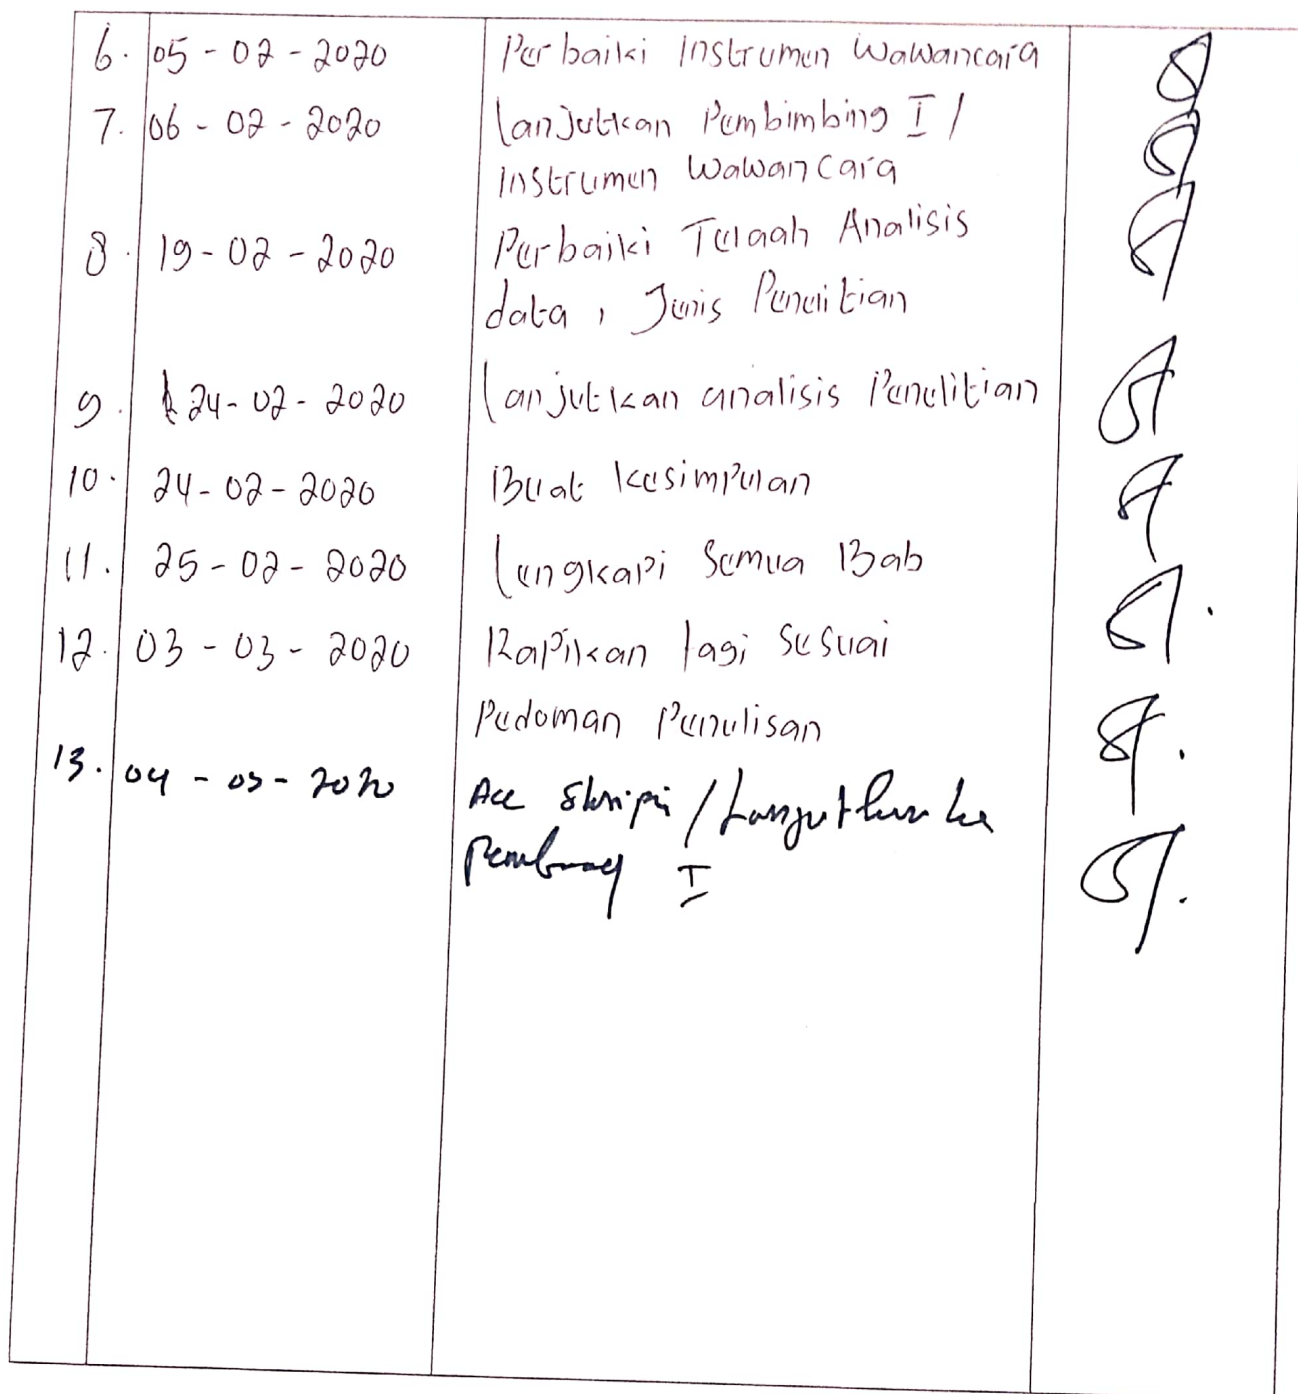 6. 05-02-2020 Perbaiki Instrumen Wawancara
7. 06-02-2020 lanjutkan Pembimbing I /
instrumen Wawancara
8. 19-02-2020 Perbaiki Telaah Analisis
data, Jenis Penelitian
9. 24-02-2020 lanjutkan analisis Penelitian
10. 24-02-2020 Buat kesimpulan
11. 25-02-2020 lengkapi Semua Bab
12. 03-03-2020 Rapikan lagi Sesuai
Pedoman Penulisan
13. 04-03-2020 Acc Skripsi / Lanjutkan ke
Pembimbing I